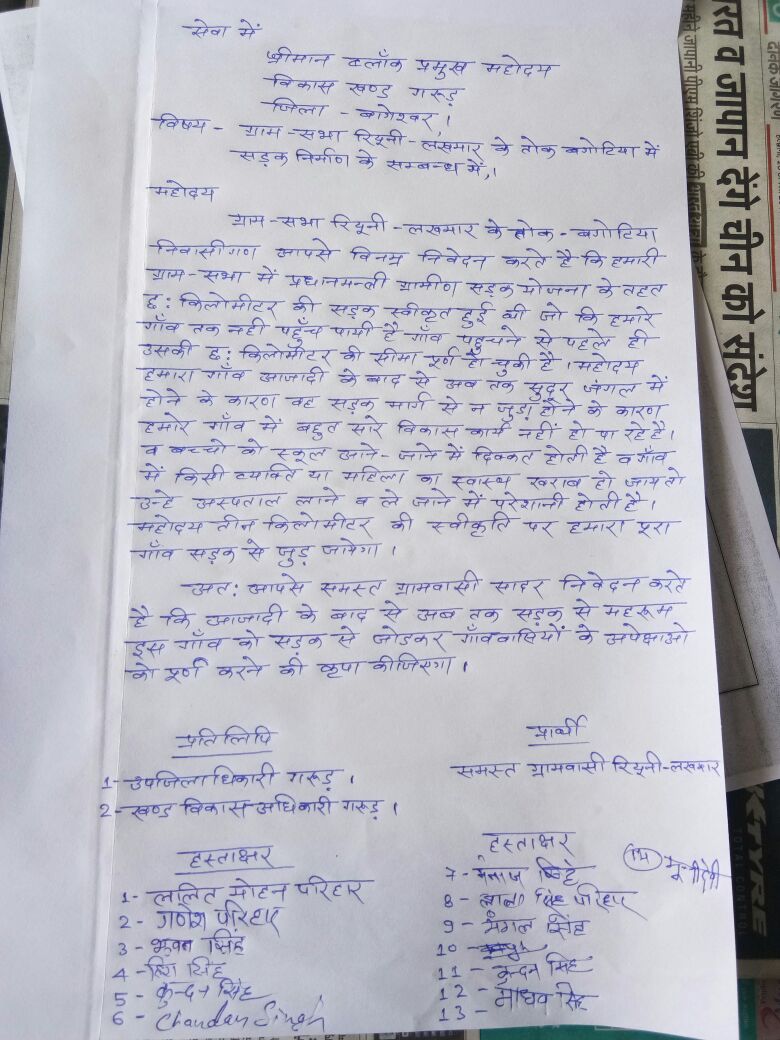 सेवा में
श्रीमान ब्लॉक प्रमुख महोदय
विकास खण्ड गरूड़
जिला - बागेश्वर।
विषय - ग्राम-सभा रियूनी-लखमार के तोक बगोटिया में
सड़क निर्माण के सम्बन्ध में,।
महोदय
ग्राम-सभा रियूनी-लखमार के तोक-बगोटिया
निवासीगण आपसे विनम्र निवेदन करते है कि हमारी
ग्राम-सभा में प्रधानमन्त्री ग्रामीण सड़क योजना के तहत
छ: किलोमीटर की सड़क स्वीकृत हुई थी जो कि हमारे
गाँव तक नही पहुँच पायी है गाँव पहुचने से पहले ही
उसकी छ: किलोमीटर की सीमा पूर्ण हो चुकी है। महोदय
हमारा गाँव आजादी के बाद से अब तक सुदूर जंगल में
होने के कारण वह सड़क मार्ग से न जुड़ा होने के कारण
हमारे गाँव में बहुत सारे विकास कार्य नहीं हो पा रहे है।
व बच्चो को स्कूल आने-जाने में दिक्कत होती है व गाँव
में किसी व्यक्ति या महिला का स्वास्थ खराब हो जाय तो
उन्हे अस्पताल लाने व ले जाने में परेशानी होती है।
महोदय तीन किलोमीटर की स्वीकृति पर हमारा पूरा
गाँव सड़क से जुड़ जायेगा।
अत: आपसे समस्त ग्रामवासी सादर निवेदन करते
है कि आजादी के बाद से अब तक सड़क से महरूम
इस गाँव को सड़क से जोडकर गाँववासियों के अपेक्षाओ
को पूर्ण करने की कृपा कीजिएगा।
प्रतिलिपि
1- उपजिलाधिकारी गरूड़।
2- खण्ड विकास अधिकारी गरूड़।
प्रार्थी
समस्त ग्रामवासी रियूनी-लखमार
हस्ताक्षर
1- ललित मोहन परिहार
2- गणेश परिहार
3- भुवन सिंह
4- सिंह
5- कुन्दन सिंह
6- Chandan Singh
हस्ताक्षर
7- सिंह
8- सिंह परिहार
9- मंगल सिंह
10-
11- कुन्दन सिंह
12- माधव सिंह
13-
14
रत व जापान देंगे चीन को संदेश
KTYRE